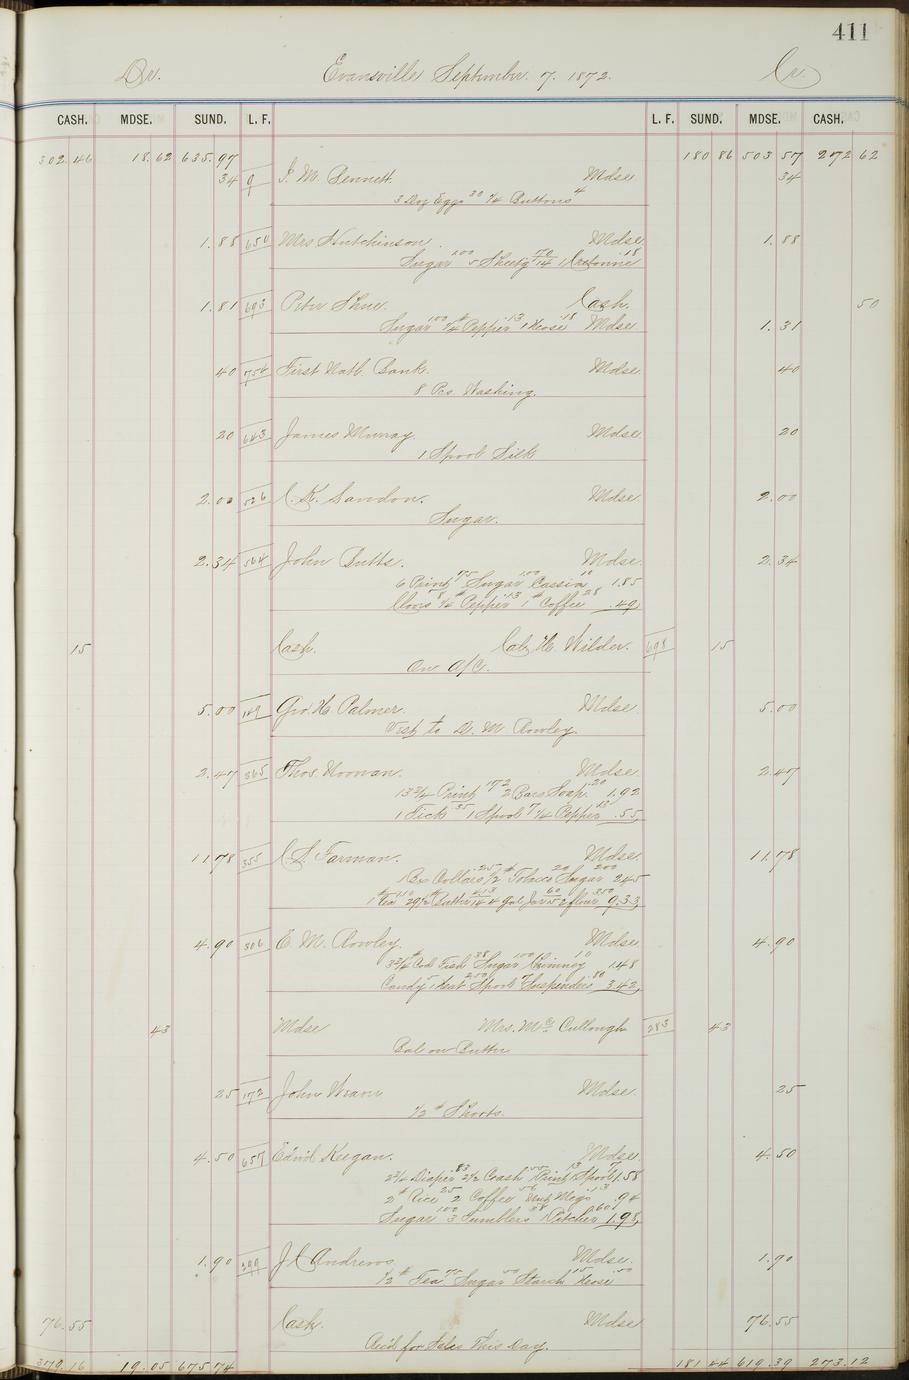 411
Dr. Evansville September 7. 1872. Cr.
CASH. MDSE. SUND. L. F. L. F. SUND. MDSE. CASH.
302.46 18.62 635.97 180 86 503 57 272 62
34 9 J. M. Bennett. Mdse 34
3 Doz Eggs 30 1/4 Buttons 4
1.88 650 Mrs Hutchinson. Mdse 1.88
Sugar 100 5 Sheetg 70/14 1 Cretonne .18
1.81 693 Peter Shue. Cash. 50
Sugar 100 1/4 # Pepper .13 1 Hose .18 Mdse 1.31
40 756 First Natl. Bank. Mdse. 40
8 Pcs. Washing.
20 643 James Murray. Mdse. 20
1 Spool Silk
2.00 526 C. K. Landon. Mdse. 2.00
Sugar.
2.34 564 John Butts. Mdse. 2.34
6 Print 75 Sugar 100 Cassia 10 1.85
Cloves 8 1/4 # Pepper .13 1 # Coffee 28 .49
15 Cash. Cal. H. Wilder. 698 15
On A/C.
5.00 149 Geo. H. Palmer. Mdse. 5.00
Vest to D. M. Rowley.
2.47 365 Thos. Noonan. Mdse. 2.47
13 3/4 Print 172 2 Bars Soap .20 1.92
1 Tick 35 1 Spool 7 1/4 Pepper 13 .55
11.78 355 C. S. Farman. Mdse. 11.78
1 Bx Collars .25 1/2 # Tobacco 20 Sugar 200 2.45
1 # Tea 110 29 1/2 # Butter 413/14 4 gal Jar 60 52 flour 350 9.33
4.90 306 E. M. Rowley. Mdse. 4.90
3 3/4 # Cod Fish 38 Sugar 100 Chimney 10 1.48
Candy 5 1 Hat 250 Spool 7 Suspenders .80 3.42
43 Mdse Mrs. McCullough 283 43
Bal on Butter
25 172 John Wrann Mdse. 25
1/2 # Shorts
4.50 657 Edwd Keegan. Mdse. 4.50
2 3/4 Diaper 83 2 1/2 Crash 55 1 Print 13 1 Spool 7 1.58
2 # Rice 25 2 Coffee 56 Nut Megs .13 .94
Sugar 100 3 Tumblers 38 1 Pitcher 60 1.98
1.90 399 J. C. Andrews Mdse. 1.90
1/2 # Tea 75 Sugar 50 Starch 15 Hose .50
76.55 Cash. Mdse 76.55
Rec'd for Sales This Day.
379.16 19.05 675.74 181 44 619.39 273.12